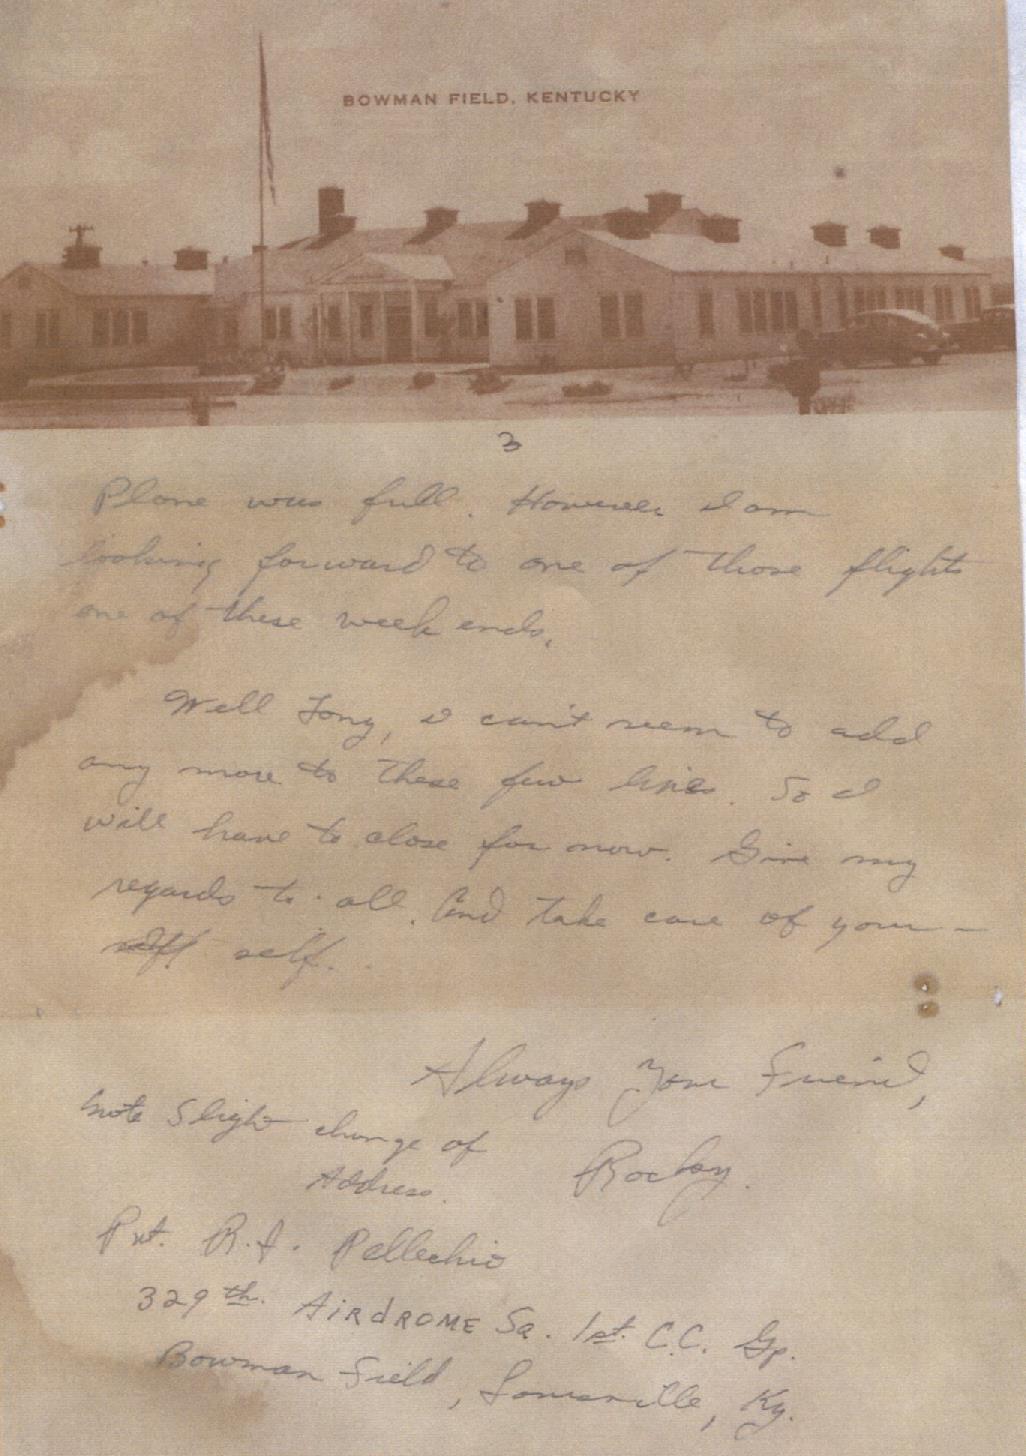 BOWMAN FIELD, KENTUCKY
3
Plane was full. However I am
looking forward to one of those flights
one of these week ends.
Well Tony, I can't seem to add
any more to these few lines. So I
will have to close for now. Give my
regards to all. And take care of your-
self self.
Always Your Friend,
Note Slight change of
Address.
Rocky.
Pvt. R.J. Pellechio
329th. AIRDROME Sq. 1st. C.C. Gp.
Bowman Field, Louisville, Ky.